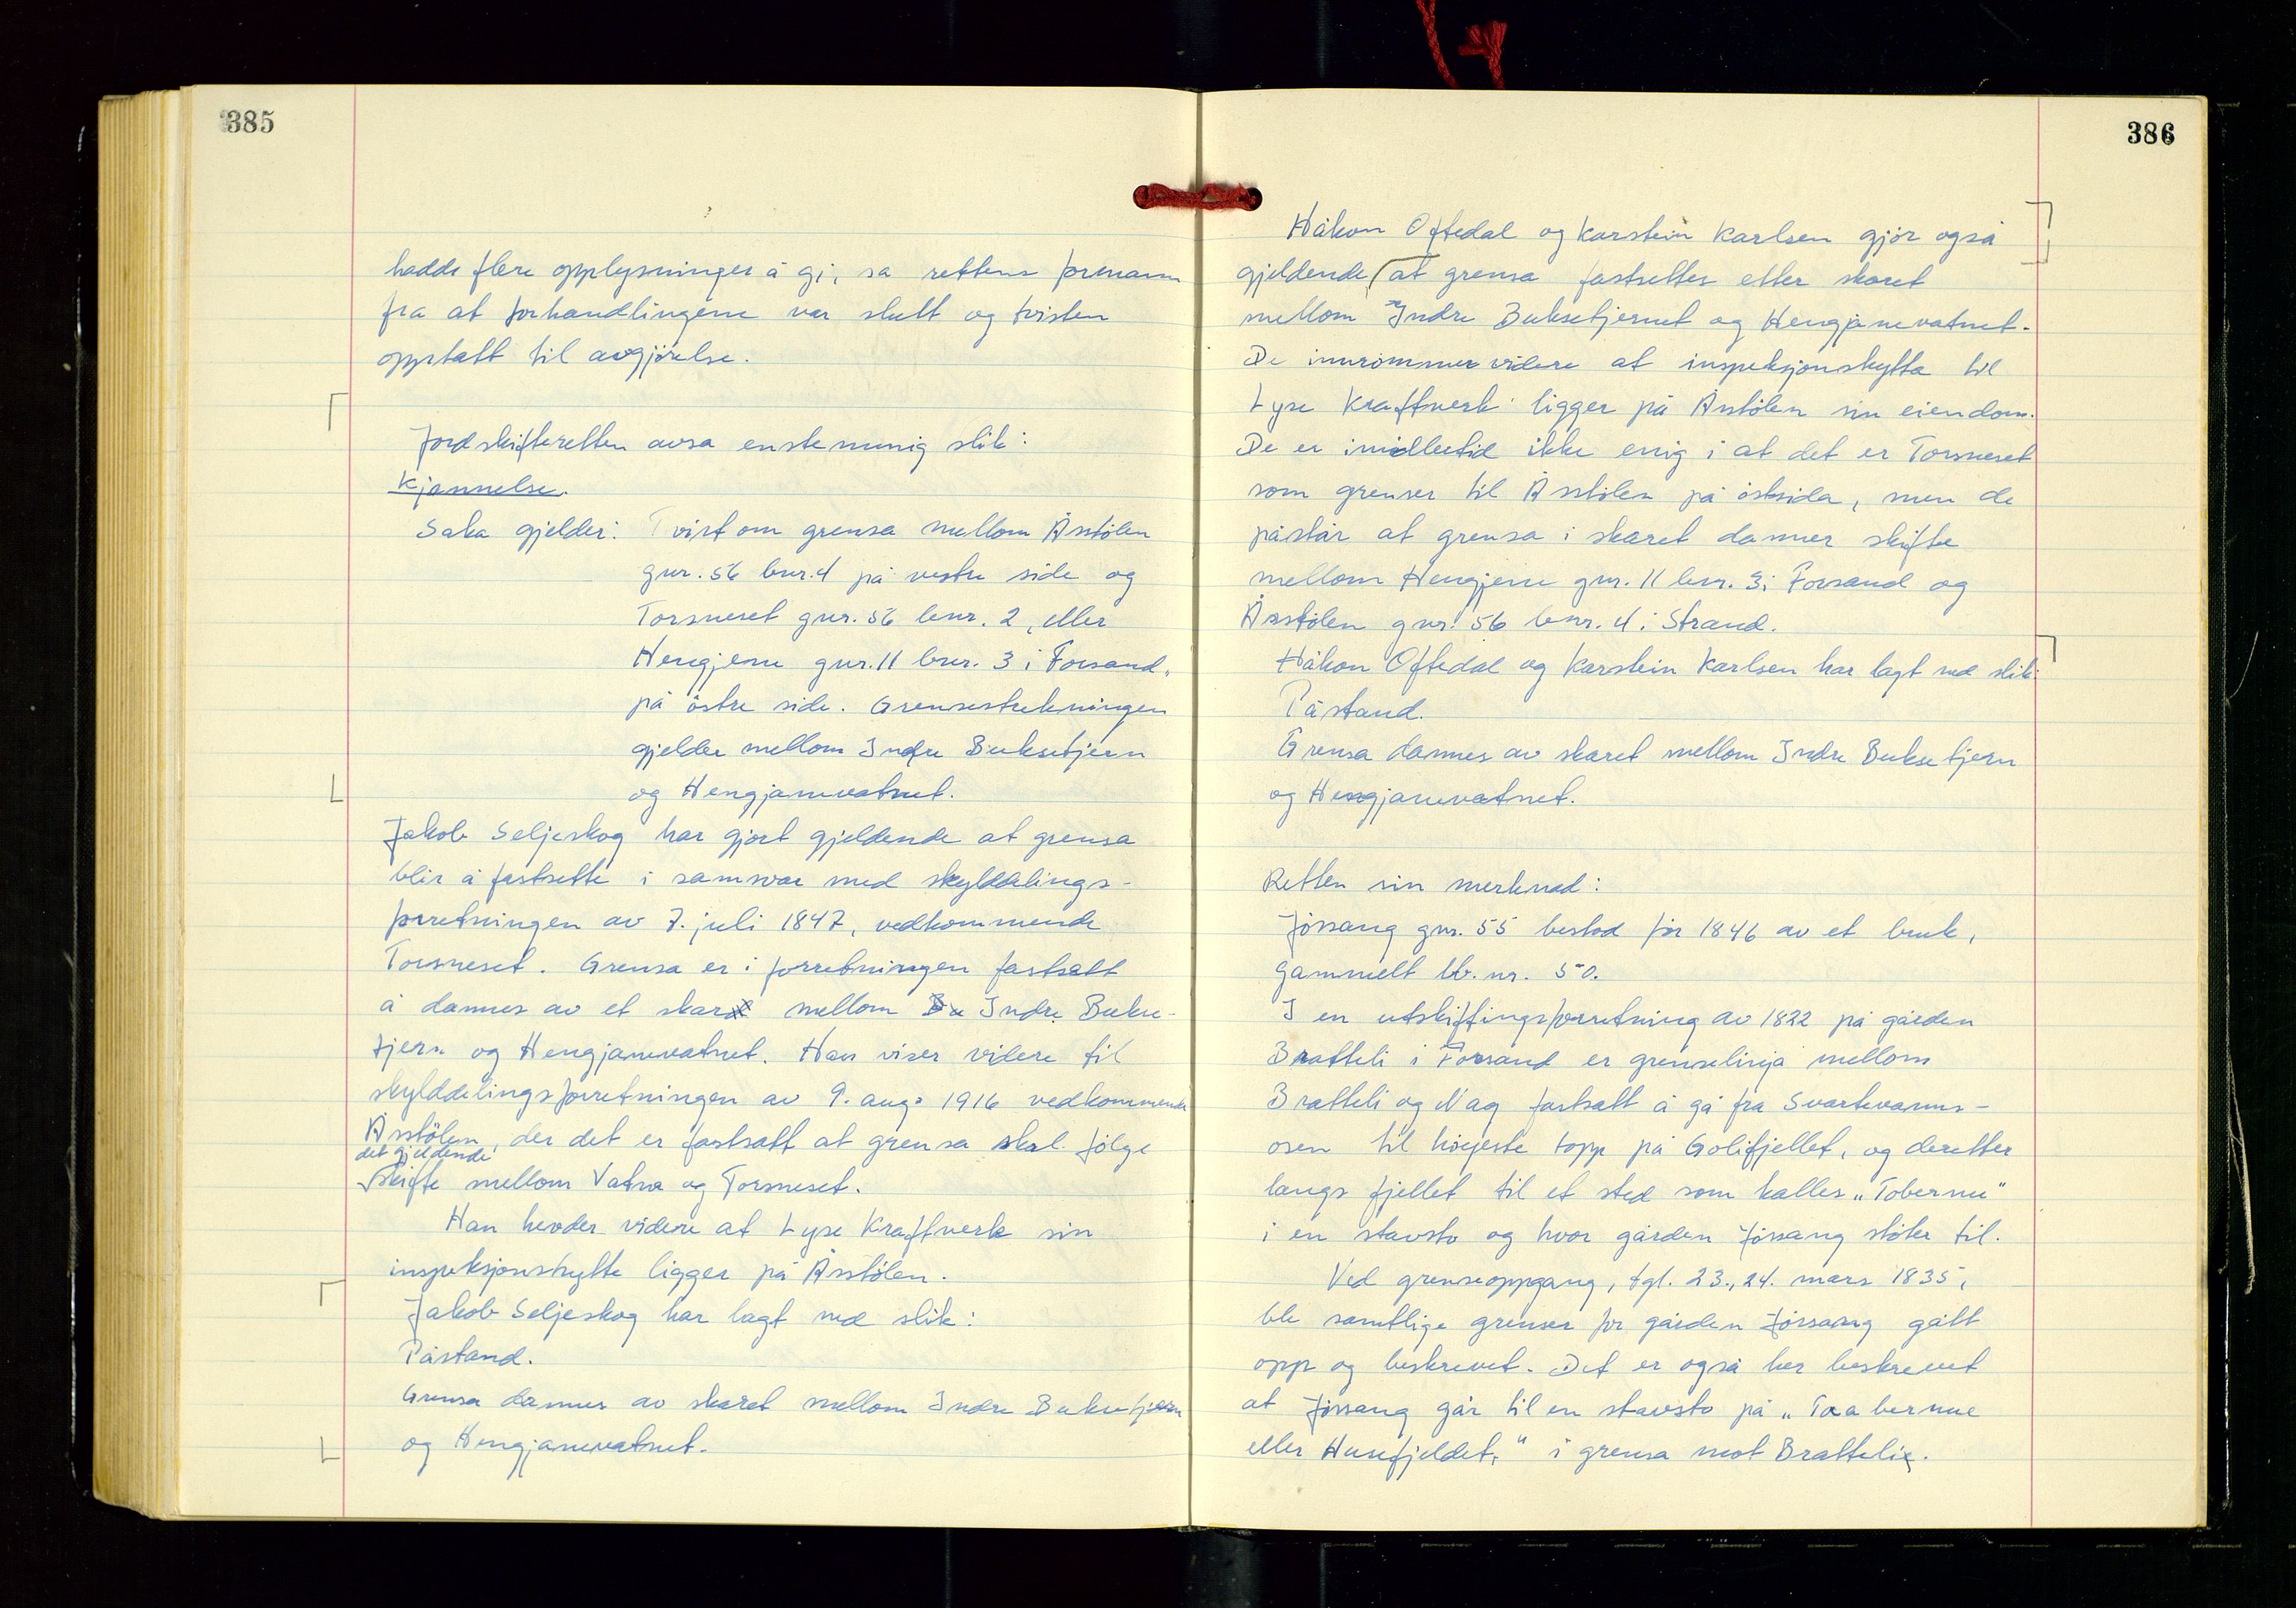 385
hadde flere opplysninger å gi, sa rettens formann
fra at forhandlingene var slutt og tvisten
opptatt til avgjørelse.
Jordskifteretten avsa enstemmig slik:
Kjennelse.
Saka gjelder: Tvist om grensa mellom Åsstølen
gnr. 56 bnr. 4 på vestre side og
Torsneset gnr. 56 bnr. 2, eller
Hengjene gnr. 11 bnr. 3 i Forsand,
på østre side. Grensestrekningen
gjelder mellom Indre Buksetjern
og Hengjanevatnet.
Jakob Seljeskog har gjort gjeldende at grensa
blir å fastsette i samsvar med skylddelings-
forretningen av 7. juli 1847, vedkommende
Torsneset. Grensa er i forretningen fastsatt
å dannes av et skar mellom Indre Bukse-
tjern og Hengjanevatnet. Han viser videre til
skylddelingsforretningen av 9. aug. 1916 vedkommende
Åsstølen, der det er fastsatt at grensa skal følge
det gjeldende
skifte mellom Vatne og Torsneset.
Han hevder videre at Lyse Kraftverk sin
inspeksjonshytte ligger på Åsstølen.
Jakob Seljeskog har lagt ned slik:
Påstand.
Grensa dannes av skaret mellom Indre Buksetjern
og Hengjanevatnet.
386
Håkon Oftedal og Karstein Karlsen gjør også
gjeldende at grensa fastsettes etter skaret
mellom Indre Buksetjernet og Hengjanevatnet.
De innrømmer videre at inspeksjonshytta til
Lyse Kraftverk ligger på Åsstølen sin eiendom.
De er imidlertid ikke enig i at det er Torsneset
som grenser til Åsstølen på østsida, men de
påstår at grensa i skaret danner skifte
mellom Hengjene gnr. 11 bnr. 3 i Forsand og
Åsstølen gnr. 56 bnr. 4 i Strand.
Håkon Oftedal og Karstein Karlsen har lagt ned slik:
Påstand.
Grensa dannes av skaret mellom Indre Buksetjern
og Hengjanevatnet.
Retten sin merknad:
Jössang gnr. 55 bestod før 1846 av et bruk,
gammelt lb. nr. 50.
I en utskiftingsforretning av 1822 på gården
Bratteli i Forsand er grenselinja mellom
Bratteli og Nag fastsatt å gå fra Svartevanns-
osen til høgeste topp på Golifjellet, og deretter
langs fjellet til et sted som kalles "Tobernu"
i en stavsto og hvor gården Jössang støter til.
Ved grenseoppgang, tgl. 23., 24. mars 1835,
ble samtlige grenser for gården Jössang gått
opp og beskrevet. Det er også her beskrevet
at Jössang går til en stavsto på "Taabernue
eller Husefjeldet," i grensa mot Bratteli.